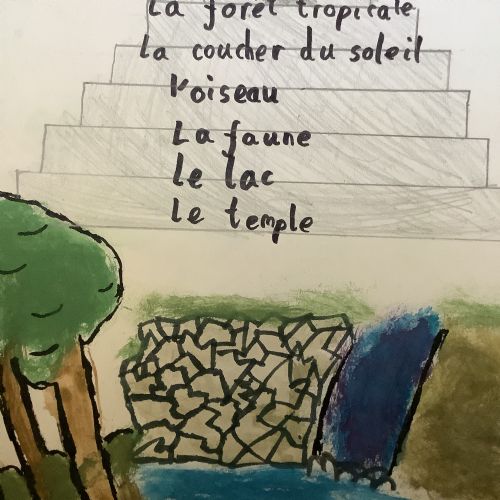 La forêt tropicale
La coucher du soleil
l'oiseau
La faune
le lac
le temple